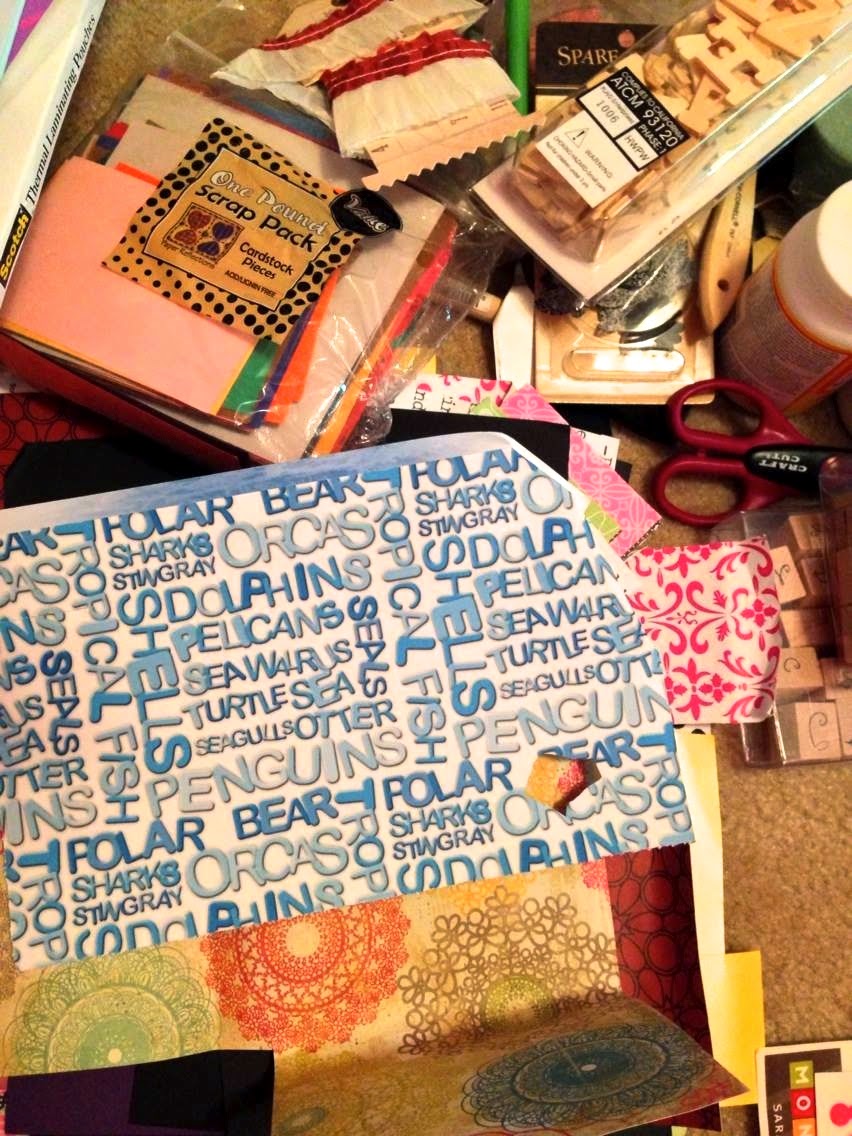 Scotch Thermal Laminating Pouches
One Pound
Scrap Pack
Paper Collections
Cardstock
Pieces
ACID/LIGNIN FREE
Value
SPARE
COMPLIES TO CALIFORNIA
ATCM 93120
PHASE 1
HWPW
1006
WARNING
CRAFT
CUTS
POLAR BEAR
TROPICAL FISH
SHARKS
STINGRAY
ORCAS
DOLPHINS
SHELLS
PELICANS
SEALS
SEA WALRUS
TURTLE SEA
SEAGULLS OTTER
PENGUINS
POLAR BEAR
SHARKS
STINGRAY
ORCAS
DOLPHINS
SHELLS
PELICAN
SEA WALRU
TURTLE SEA
SEAGULLS OTTE
PENGUIN
POLAR BEAR
TROP
SHARKS
STINGRAY
ORCAS
DOLPHINS
POLAR BEAR
TROP
SHARKS
STINGRAY
ORCAS
DOLPHINS
MON
SAR